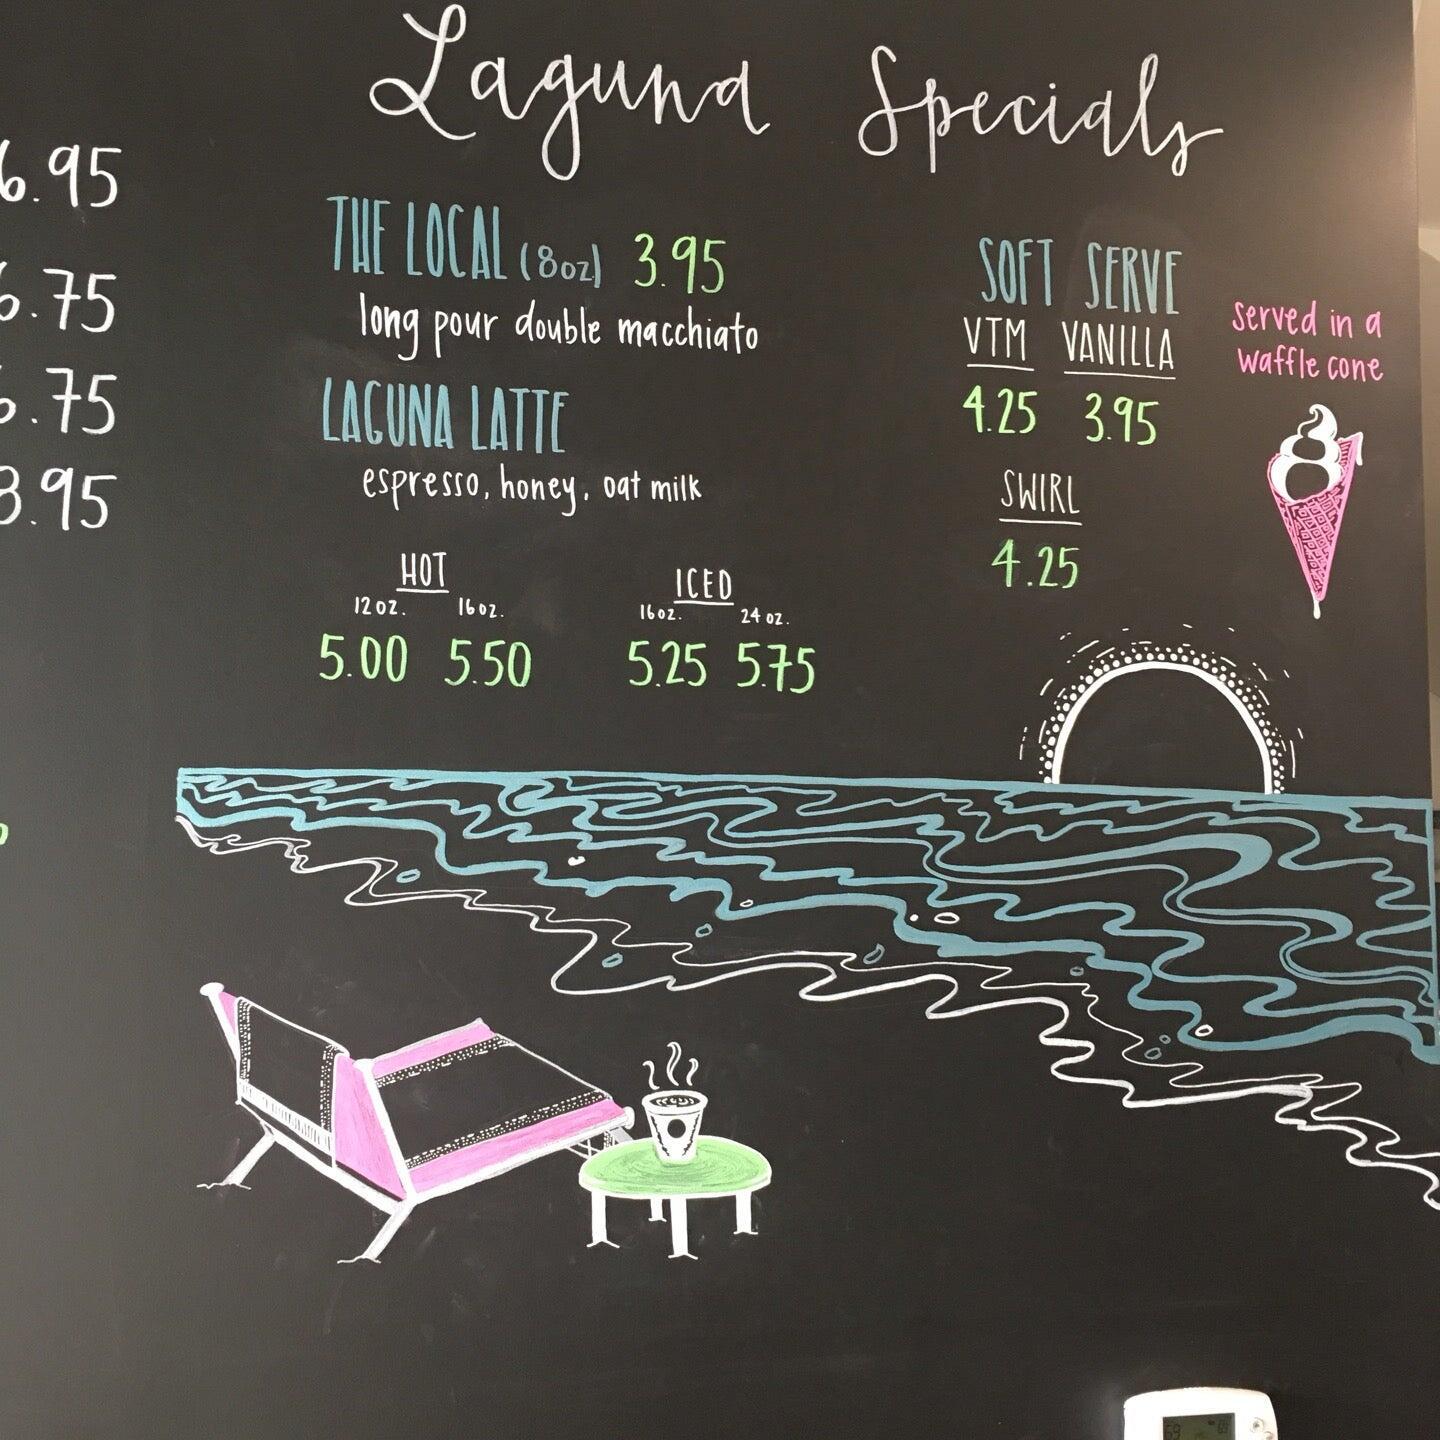 Laguna Specials
6.95
6.75
6.75
3.95
THE LOCAL (8oz) 3.95
long pour double macchiato
LAGUNA LATTE
espresso, honey, oat milk
HOT
12 oz. 16 oz.
5.00 5.50
ICED
16 oz. 24 oz.
5.25 5.75
SOFT SERVE
VTM VANILLA
4.25 3.95
SWIRL
4.25
served in a
waffle cone